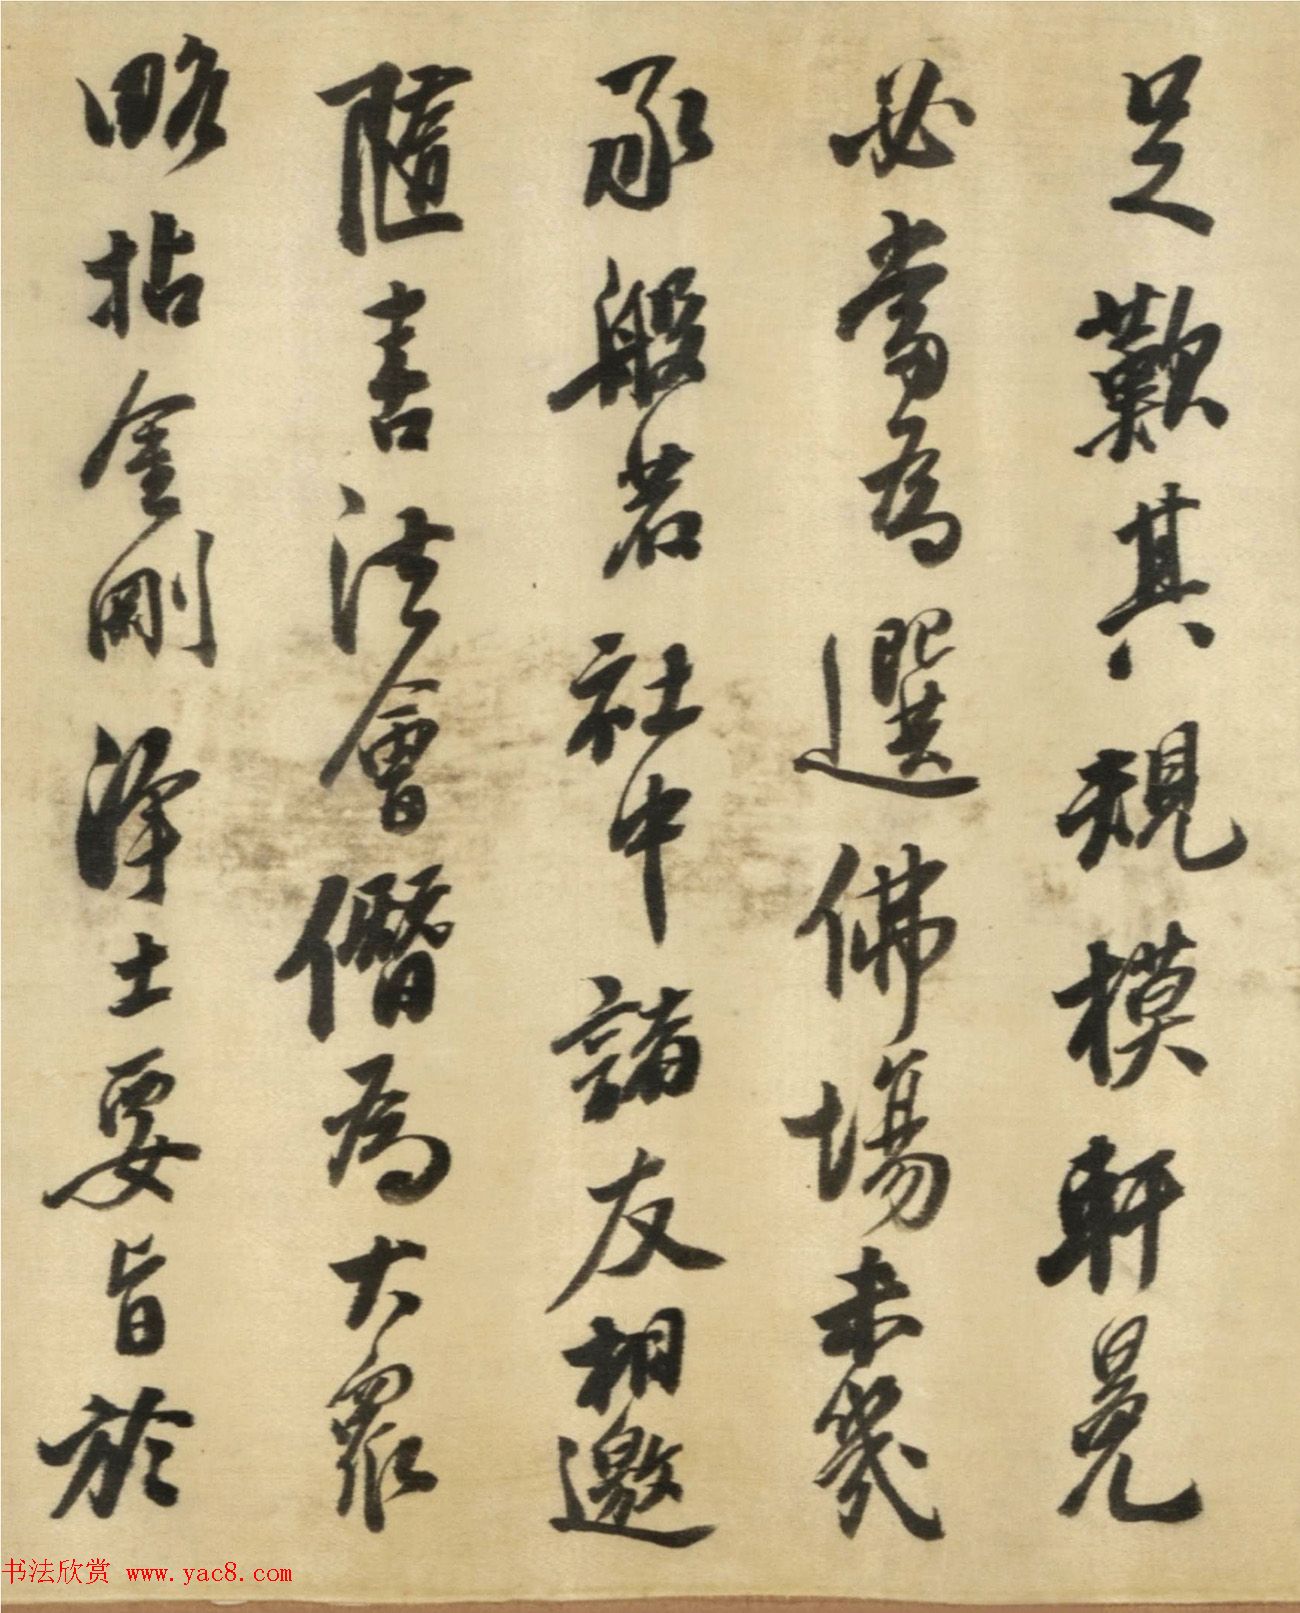 足歎其規模軒冕
必當為選佛場未幾
承般若社中諸友相邀
隨喜法會僭為大眾
略拈金剛淨土要旨於
书法欣赏 www.yac8.com